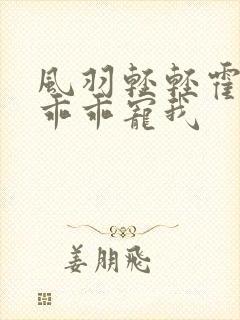 風羽輕輕霍
乖乖寵我
姜朋飛